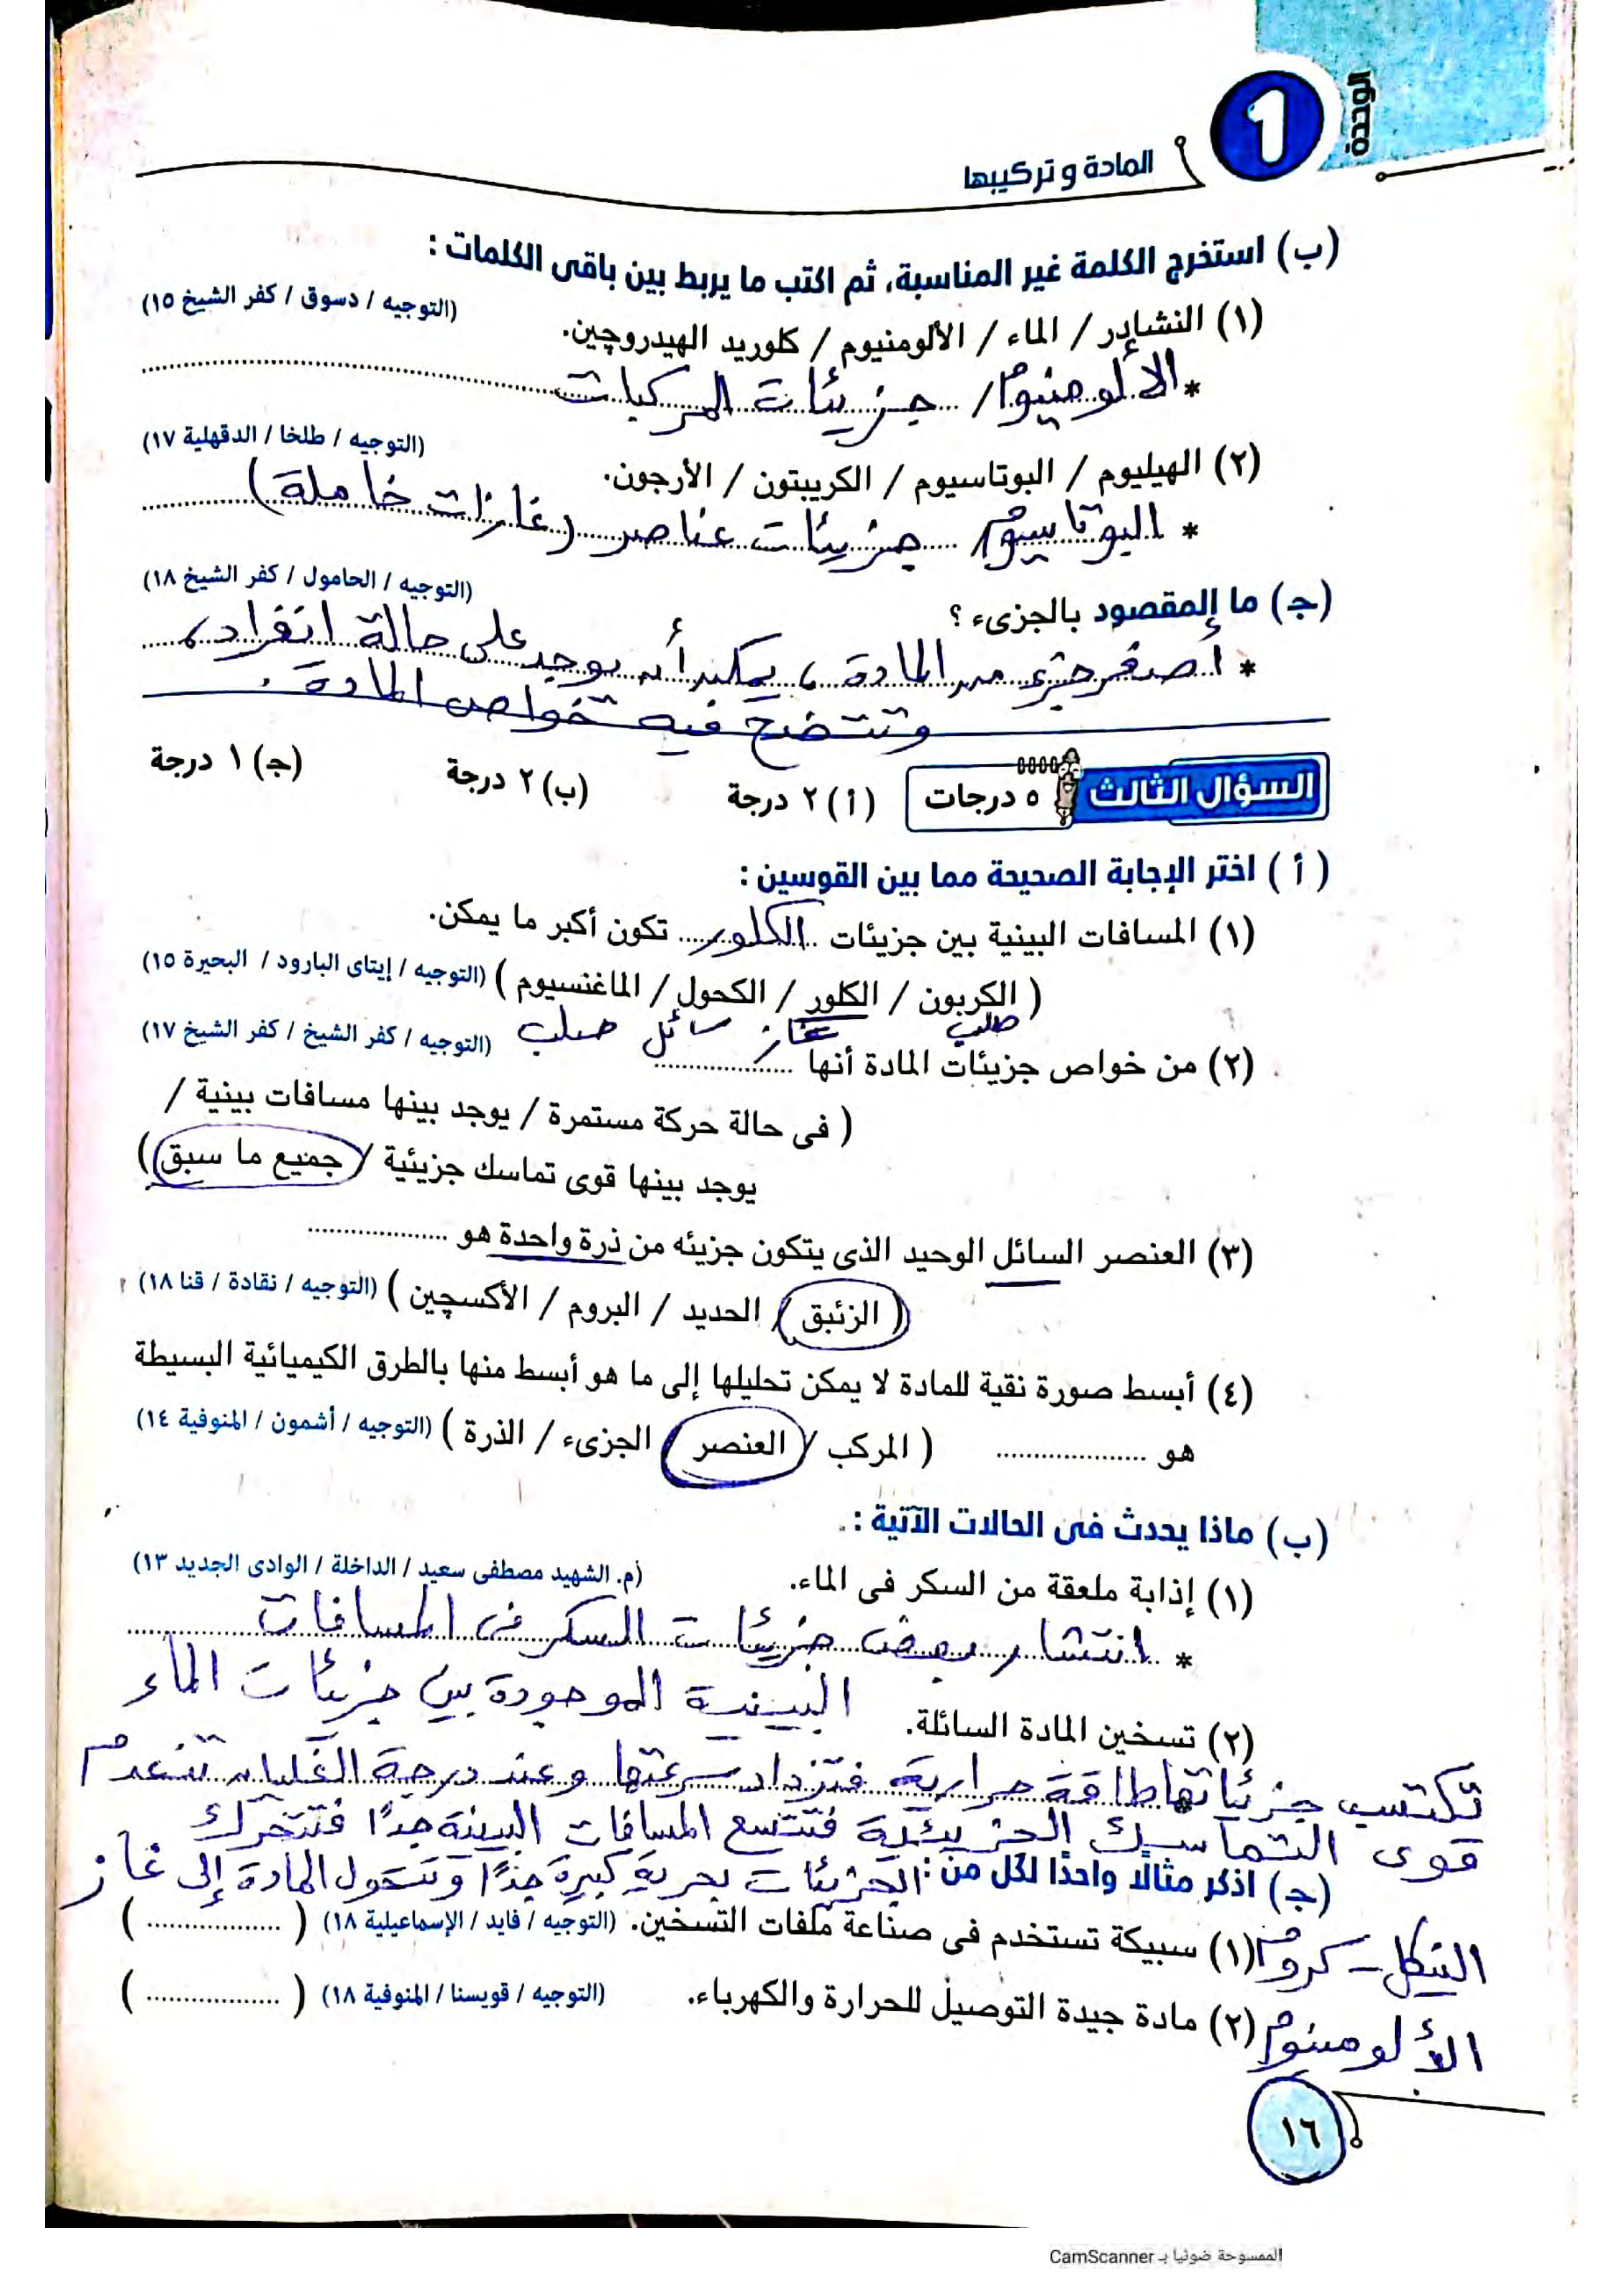 الوحدة
1
المادة وتركيبها
(ب) استخرج الكلمة غير المناسبة، ثم اكتب ما يربط بين باقى الكلمات :
(١) النشادر / الماء / الألومنيوم / كلوريد الهيدروچين. (التوجيه / دسوق / كفر الشيخ ١٥)
* الألومنيوم / جزيئات المركبات
(٢) الهيليوم / البوتاسيوم / الكريبتون / الأرجون. (التوجيه / طلخا / الدقهلية ١٧)
* البوتاسيوم / جزيئات عناصر (غازات خاملة)
(جـ) ما المقصود بالجزىء ؟ (التوجيه / الحامول / كفر الشيخ ١٨)
* أصغر جزء من المادة، يمكن أن يوجد على حالة انفراد،
وتتضح فيه خواص المادة .
السؤال الثالث ٥ درجات (أ) ٢ درجة (ب) ٢ درجة (جـ) ١ درجة
(أ) اختر الإجابة الصحيحة مما بين القوسين :
(١) المسافات البينية بين جزيئات الكلور تكون أكبر ما يمكن.
( الكربون / الكلور / الكحول / الماغنسيوم ) (التوجيه / إيتاى البارود / البحيرة ١٥)
صلب غاز سائل صلب
(٢) من خواص جزيئات المادة أنها .................... (التوجيه / كفر الشيخ / كفر الشيخ ١٧)
( فى حالة حركة مستمرة / يوجد بينها مسافات بينية /
يوجد بينها قوى تماسك جزيئية / جميع ما سبق )
(٣) العنصر السائل الوحيد الذى يتكون جزيئه من ذرة واحدة هو ....................
( الزئبق / الحديد / البروم / الأكسچين ) (التوجيه / نقادة / قنا ١٨)
(٤) أبسط صورة نقية للمادة لا يمكن تحليلها إلى ما هو أبسط منها بالطرق الكيميائية البسيطة
هو .................... ( المركب / العنصر / الجزىء / الذرة ) (التوجيه / أشمون / المنوفية ١٤)
(ب) ماذا يحدث فى الحالات الآتية :
(١) إذابة ملعقة من السكر فى الماء. (م. الشهيد مصطفى سعيد / الداخلة / الوادى الجديد ١٣)
* انتشار بعض جزيئات السكر فى المسافات
البينية الموجودة بين جزيئات الماء
(٢) تسخين المادة السائلة.
تكتسب جزيئاتها طاقة حرارية فتزداد سرعتها وعند درجة الغليان تنعدم
قوى التماسك الجزيئية فتتسع المسافات البينية جدًا فتتحرك
الجزيئات بحرية كبيرة جدًا وتتحول المادة إلى غاز
(جـ) اذكر مثالًا واحدًا لكل من :
(١) سبيكة تستخدم فى صناعة ملفات التسخين. (التوجيه / فايد / الإسماعيلية ١٨) (....................)
النيكل - كروم
(٢) مادة جيدة التوصيل للحرارة والكهرباء. (التوجيه / قويسنا / المنوفية ١٨) (....................)
الألومنيوم
١٦
الممسوحة ضوئيا بـ CamScanner